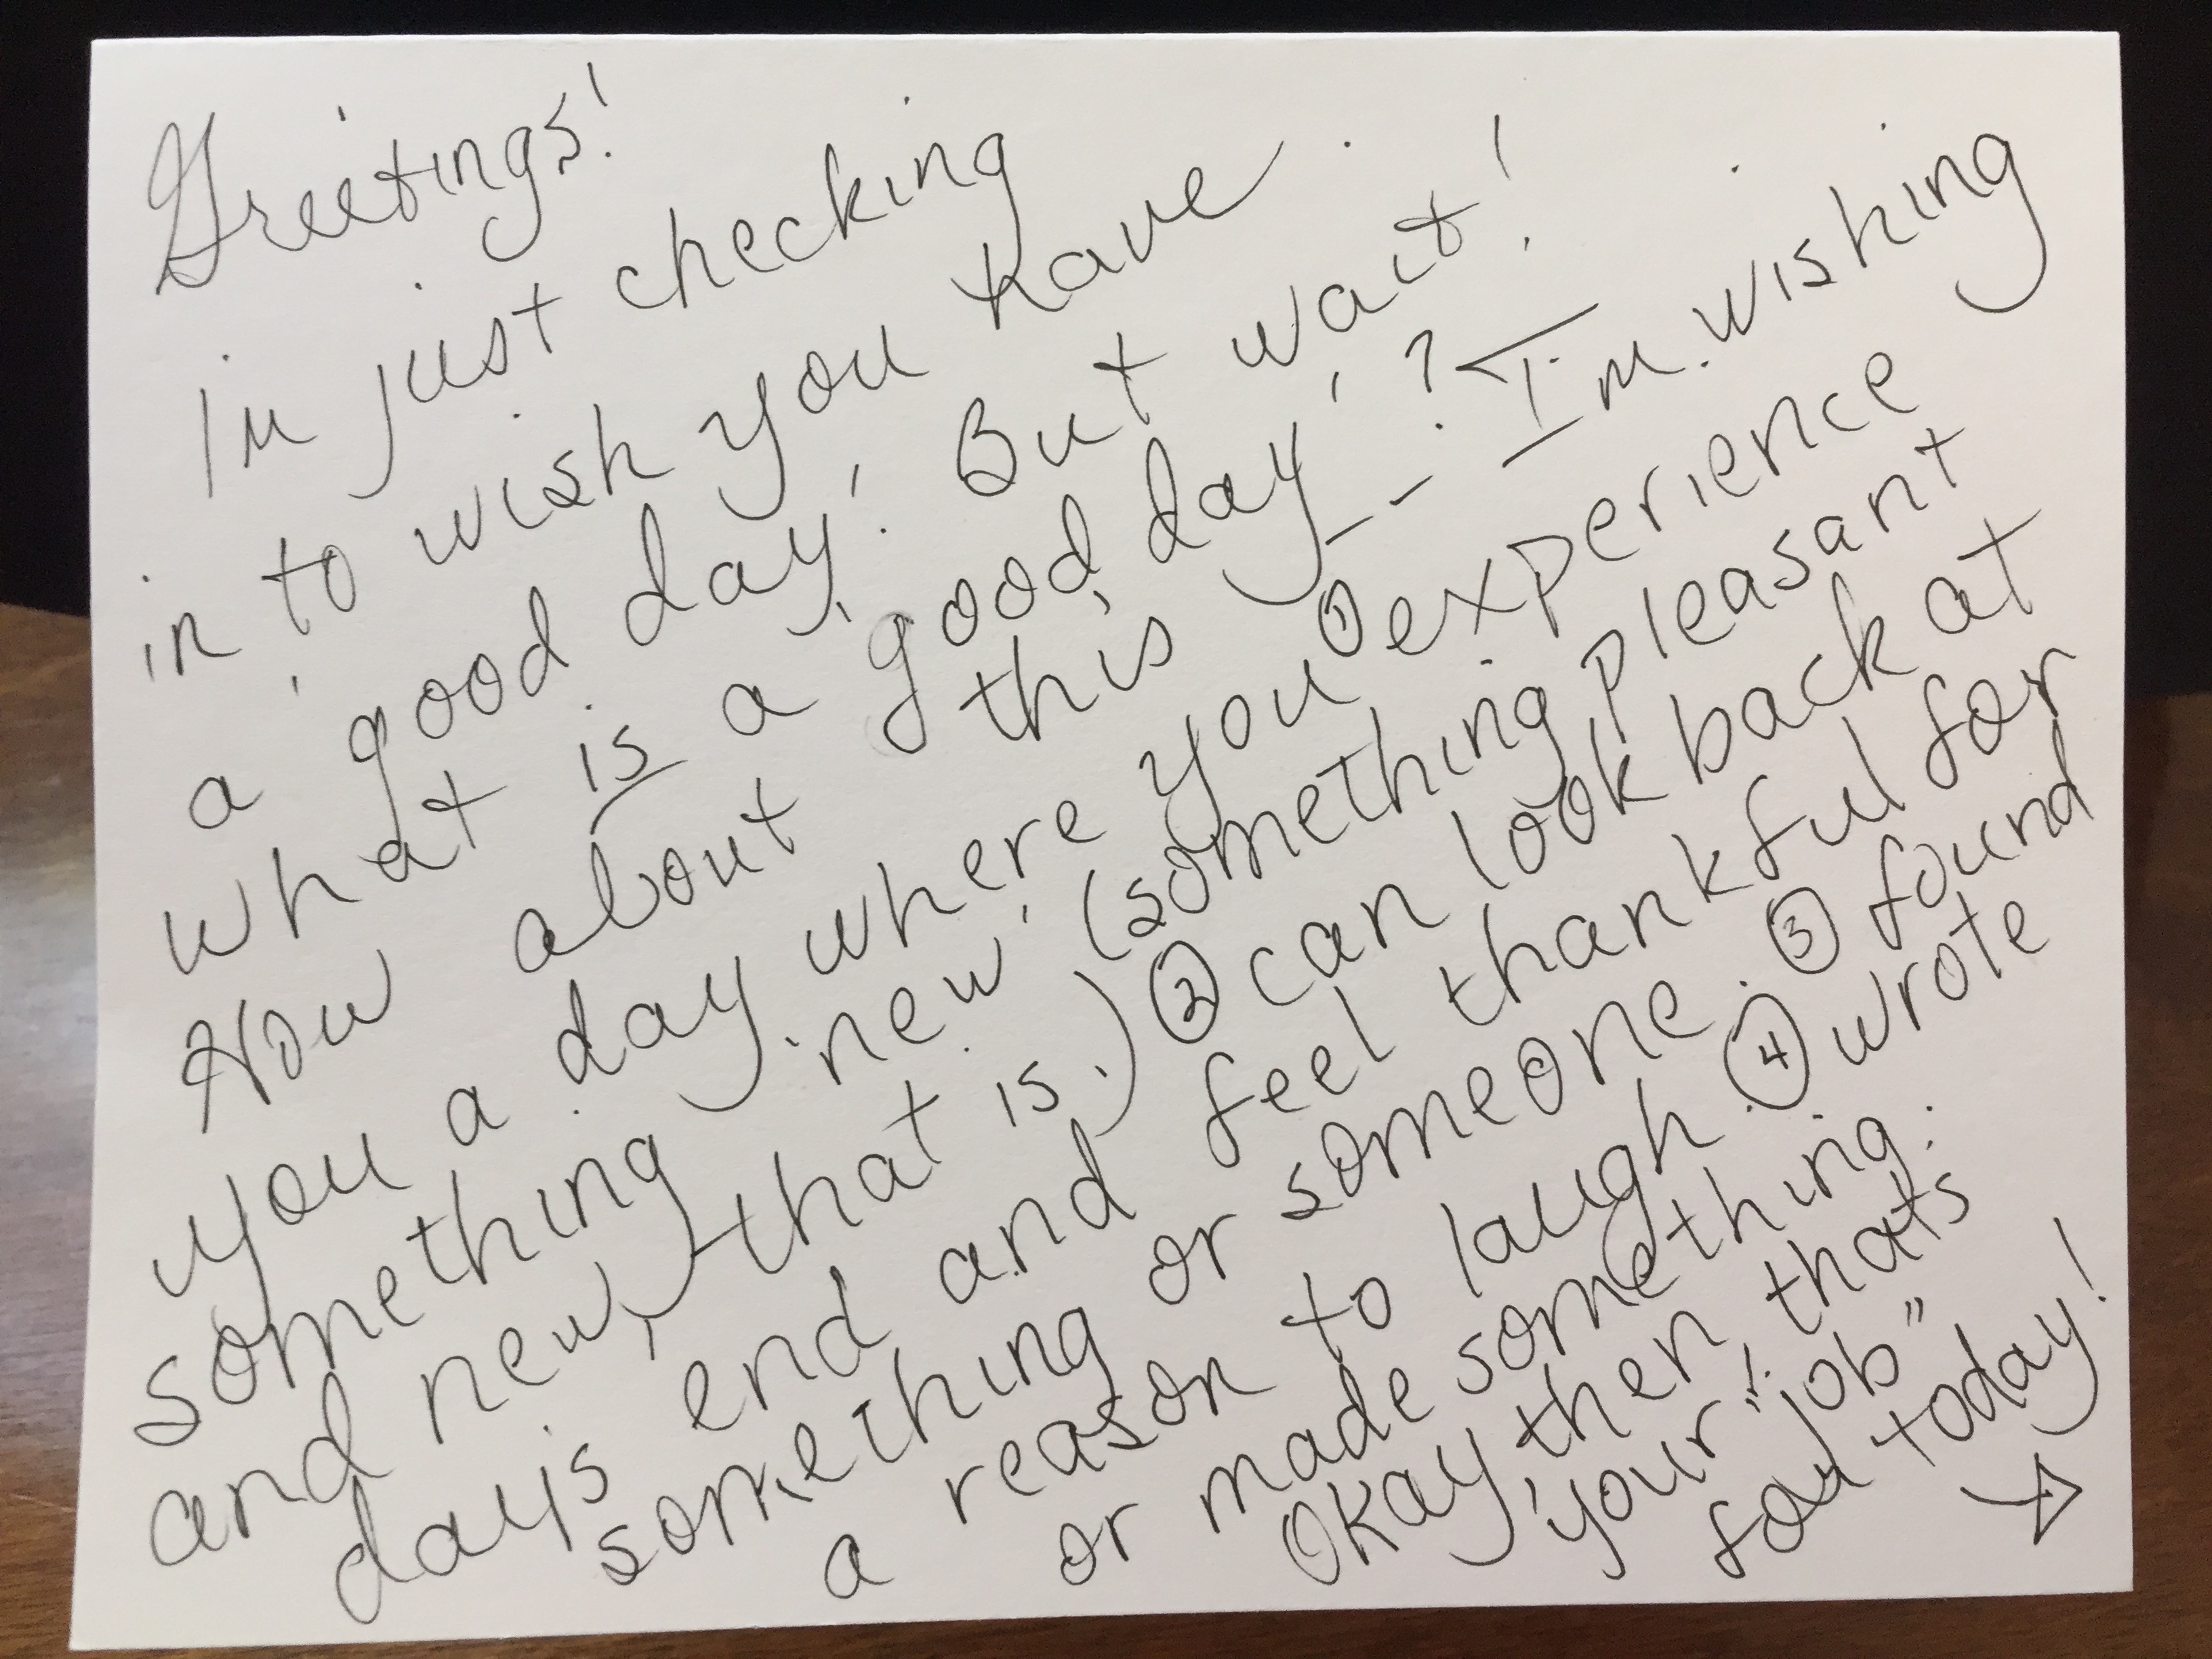 Greetings!
I'm just checking
in to wish you have
a good day! But wait!
what is a good day?
How about this -- I'm wishing
you a day where you ① experience
something new (something pleasant
and new, that is.) ② can look back at
day's end and feel thankful for
something or someone. ③ found
a reason to laugh. ④ wrote
or made something.
Okay then, that's
your "job"
for today!